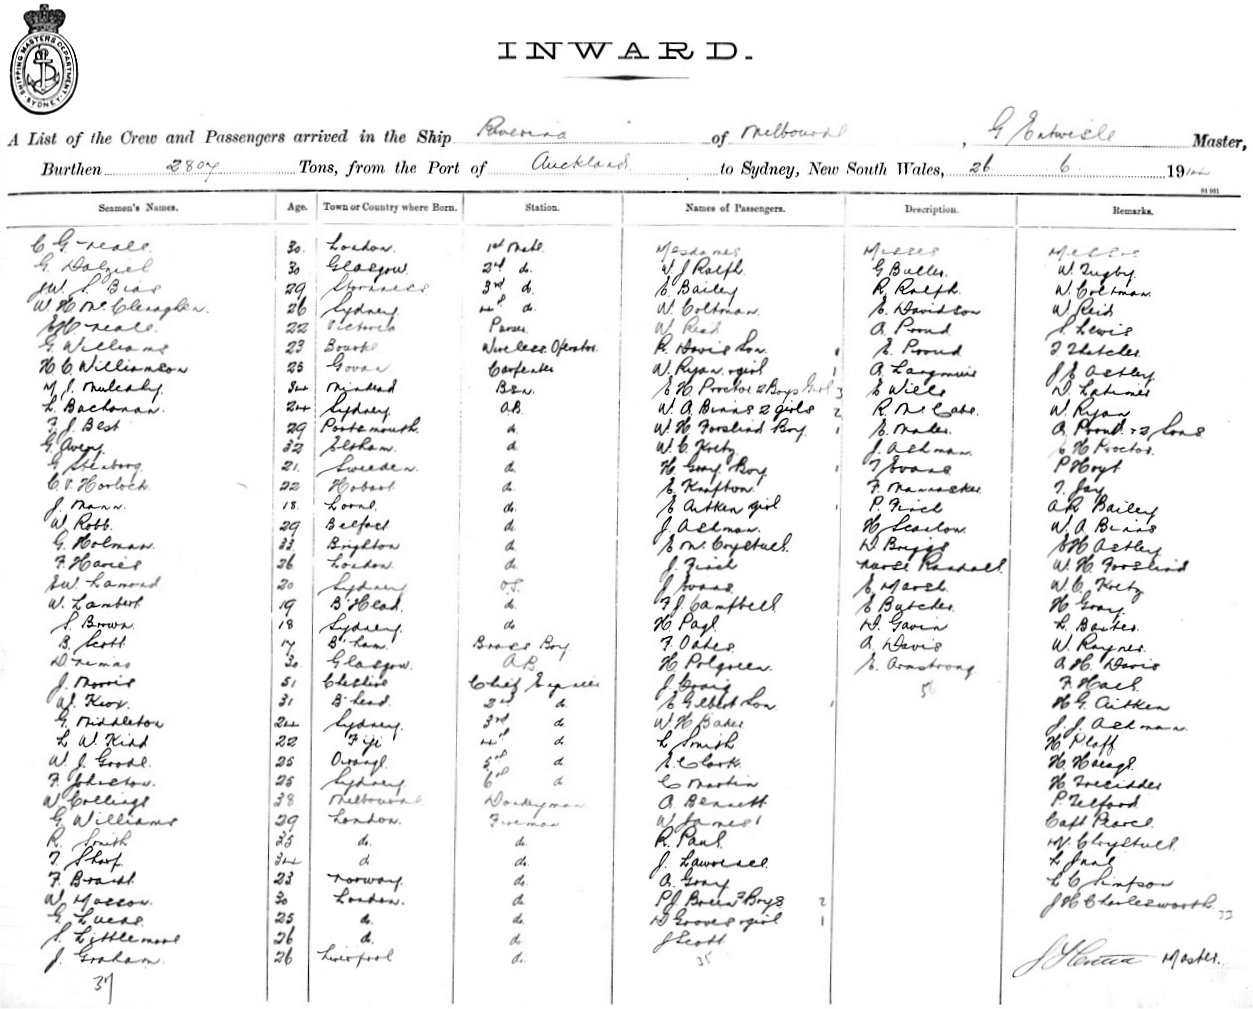 SHIPPING MASTERS DEPARTMENT SYDNEY
INWARD.
A List of the Crew and Passengers arrived in the Ship Riverina of Melbourne, G Entwisle Master,
Burthen 2807 Tons, from the Port of Auckland to Sydney, New South Wales, 26 6 19
Seamen's Names. Age. Town or Country where Born. Station. Names of Passengers. Description. Remarks.
C G Neale 30 London 1st Mate Mesdames Misses Messrs
G Dalziel 30 Glasgow 2nd do W J Ralph G Buller W. Tugby
29 3rd do E Bailey R. Ralph W. Coltman
W H McClenaghan 26 Sydney 4th do W. Coltman E Davidson W Reid
E H Neale 22 Victoria Purser W Reid A Proud S Lewis
G Williams 23 Bourke Wireless Operator R. Davis Son 1 E Proud T Thatcher
H C Williamson 25 Govan Carpenter W. Ryan & girl 1 A Langmuir J E Astley
M J Mulcahy 34 Minehead Bsn E H Proctor 2 Boys Girl 3 E Wills D Latimer
L Buchanan 24 Sydney AB W. A. Binns 2 girls 2 R. McCabe W Ryan
F J Best 29 Portsmouth do W. H Forslind Boy 1 E A Proud & 2 Sons
G Avery 32 Eltham do W. C. Kretz J. Ashman E H Proctor
G Stenborg 21 Sweeden do H Gray Boy 1 T Evans P Hoyt
C V Horlock 22 Hobart do E Knifton F. T. Jay
J. Mann 18 do E Aitken girl 1 P. Finch A R Bailey
W Robb 29 Belfast do J Ashman H Scanlon W. A Binns
G. Holman 33 Brighton do E McCrystall D Briggs E H Astley
F Havies 26 London do J. Finch Nurse Randall W. H Forslind
E W Lamond 20 Sydney OS J Evans E Marsh W. C. Kretz
W. Lambert 19 B'Head do F J Campbell E Butcher H Gray
S Brown 18 Sydney do H Page D. Gavin L. Baxter
B. Scott 17 B'ham Brass Boy F Oates A Davis W. Rayner
D Nemmo 30 Glasgow AB H Polgreen E. Armstrong A H Davis
J. Morris 51 Cheshire Chief Engineer J Craig 5 F Hall
W. Knox 31 B'head 2nd do E Gilbert Son 1 H G. Aitken
G. Middleton 24 Sydney 3rd do W. H Baker J. J. Ashman
L W. Kidd 22 Fiji 4th do L Smith H Plaff
W. J. Goode 25 Orange 5th do E Clark H
F Johnston 25 Sydney 6th do C Martin H Tresidder
W Collings 38 Melbourne Donkeyman A Bennett P. Telford
G Williams 29 London Fireman W James Capt Pearce
R. Smith 35 do do R. Paul W. Crystall
T. Sharp 34 do do J. Lawrence L
F. Brandt 23 Norway do A Gray L C Simpson
W. Mosson 30 London do P. J. 2 Boys 2 J H Charlesworth
G. Lucas 25 do do D Groves & girl 1 33
S. Littlemore 26 do do J Scott
J. Graham 26 Liverpool do 35 Master
37